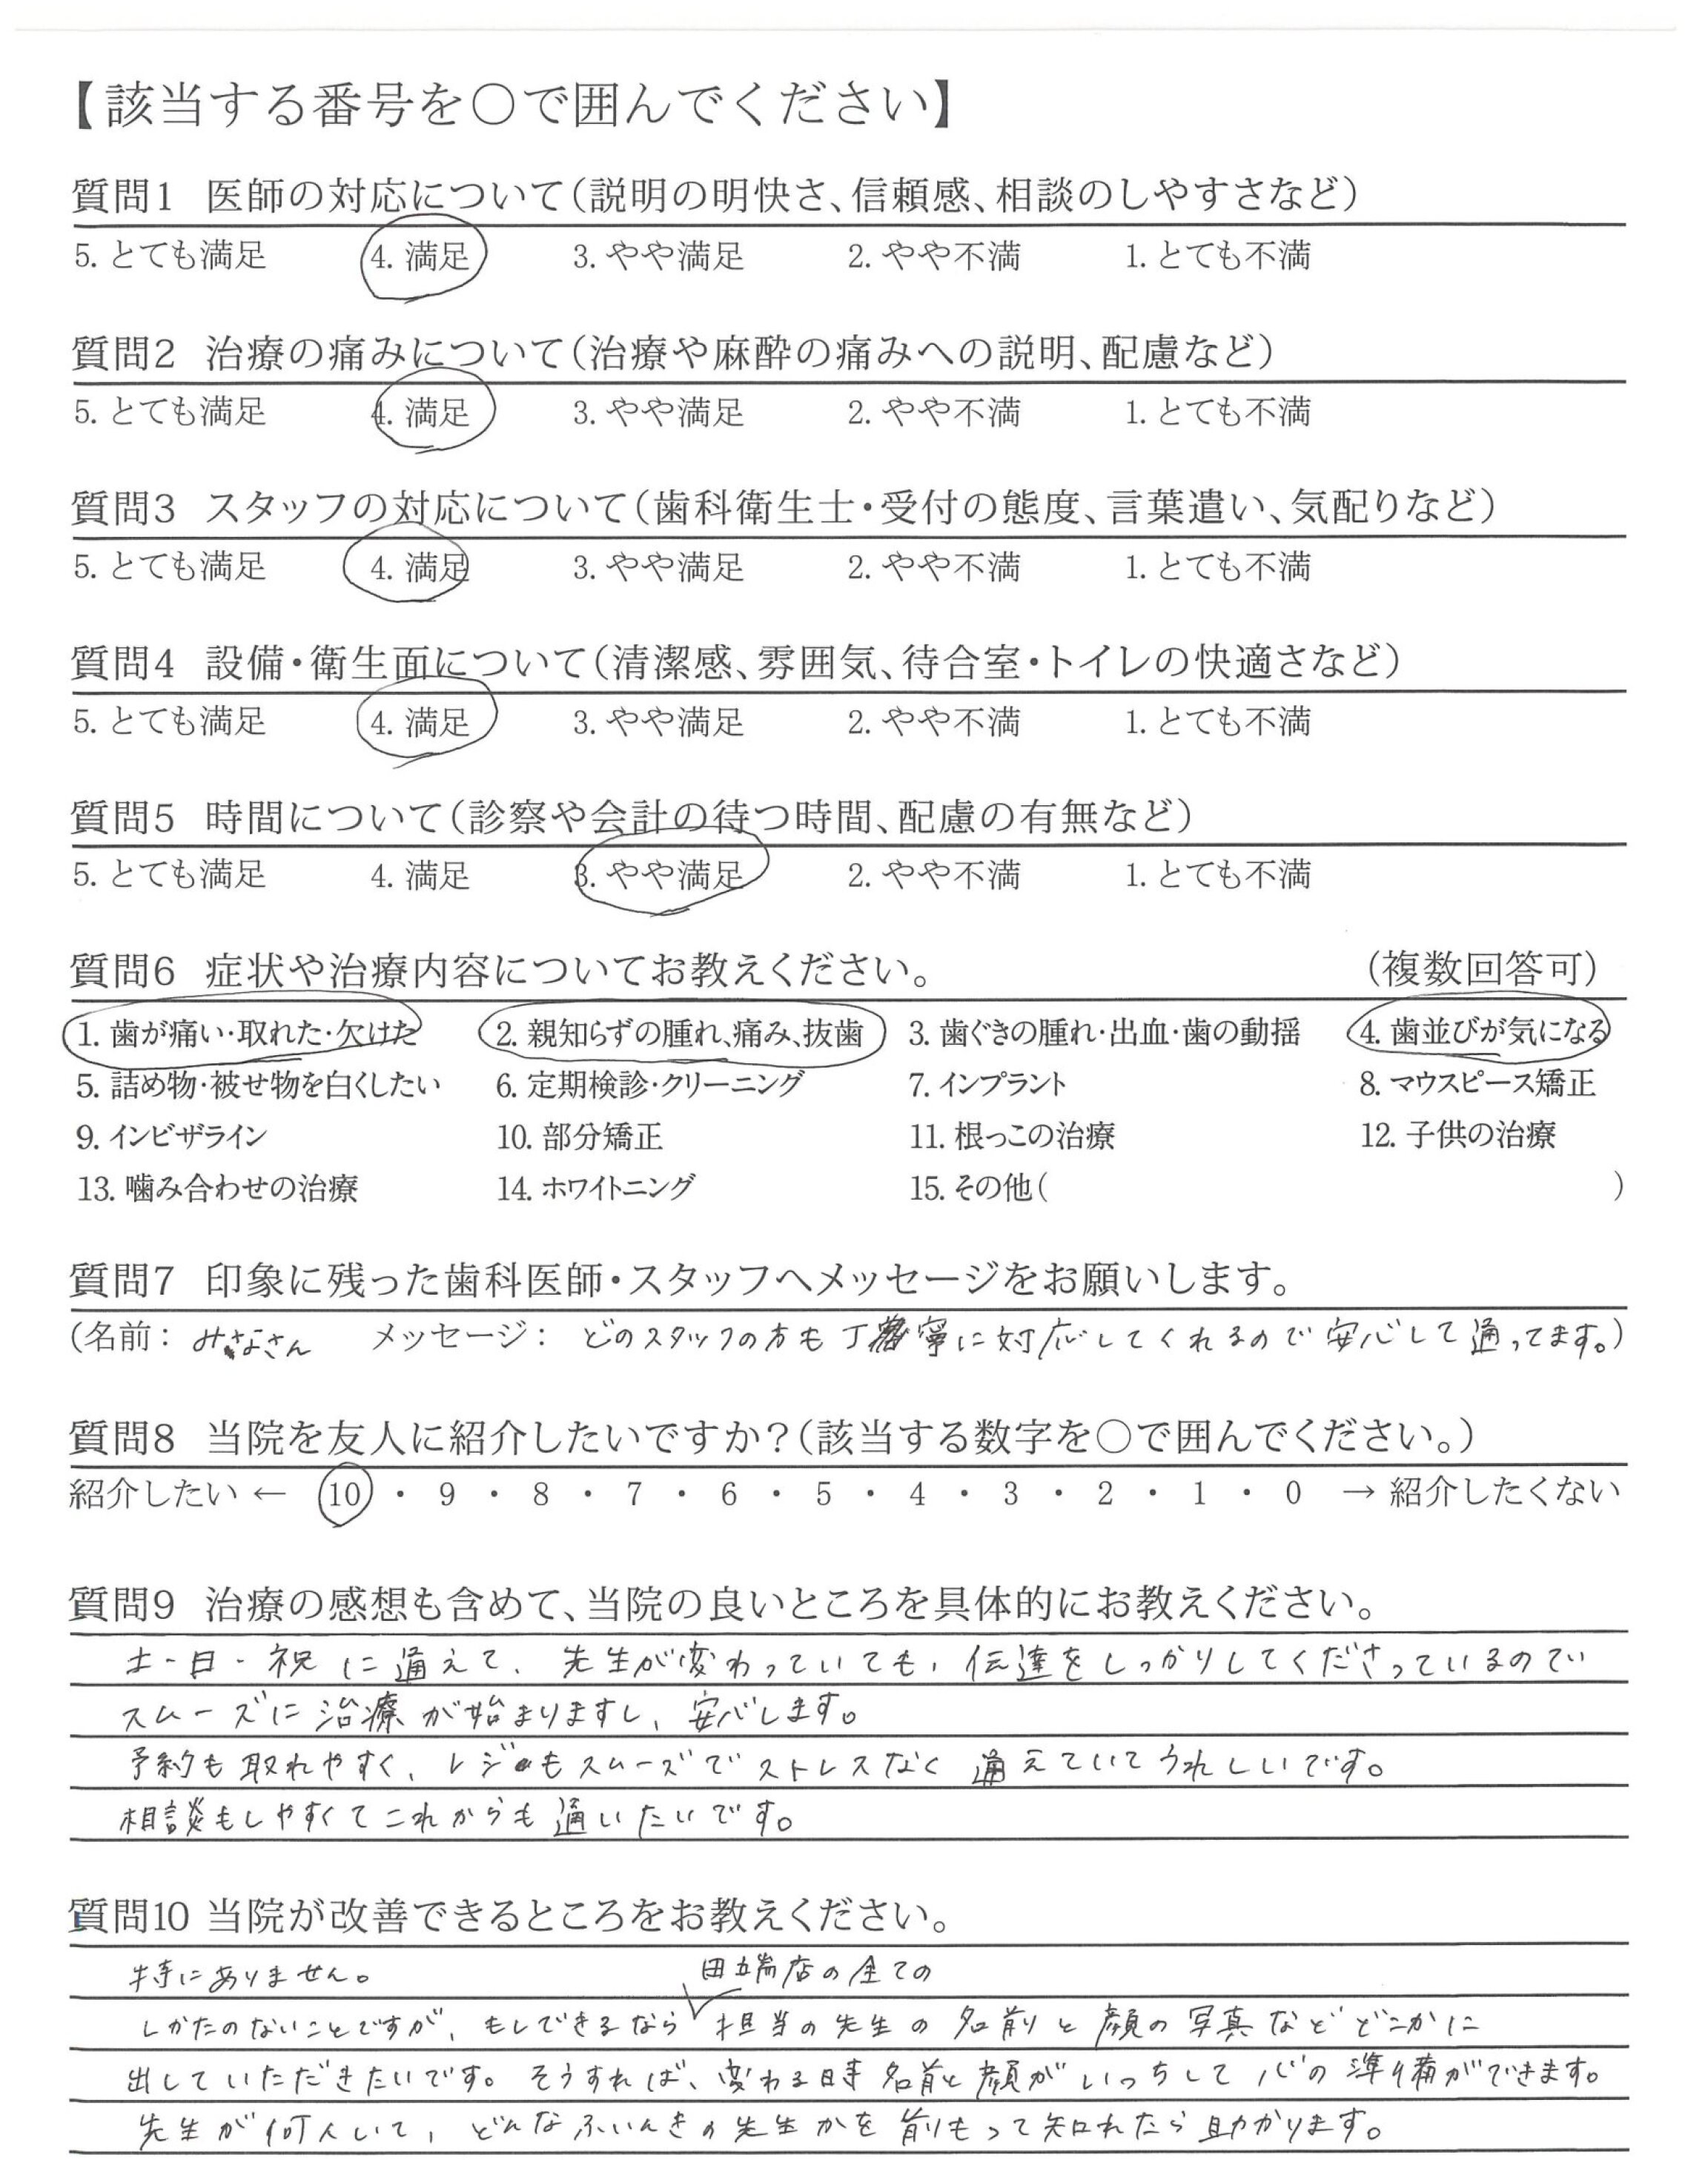 【該当する番号を○で囲んでください】
質問1 医師の対応について(説明の明快さ、信頼感、相談のしやすさなど)
5. とても満足 4. 満足 3. やや満足 2. やや不満 1. とても不満
質問2 治療の痛みについて(治療や麻酔の痛みへの説明、配慮など)
5. とても満足 4. 満足 3. やや満足 2. やや不満 1. とても不満
質問3 スタッフの対応について(歯科衛生士・受付の態度、言葉遣い、気配りなど)
5. とても満足 4. 満足 3. やや満足 2. やや不満 1. とても不満
質問4 設備・衛生面について(清潔感、雰囲気、待合室・トイレの快適さなど)
5. とても満足 4. 満足 3. やや満足 2. やや不満 1. とても不満
質問5 時間について(診察や会計の待つ時間、配慮の有無など)
5. とても満足 4. 満足 3. やや満足 2. やや不満 1. とても不満
質問6 症状や治療内容についてお教えください。 (複数回答可)
1. 歯が痛い・取れた・欠けた 2. 親知らずの腫れ、痛み、抜歯 3. 歯ぐきの腫れ・出血・歯の動揺 4. 歯並びが気になる
5. 詰め物・被せ物を白くしたい 6. 定期検診・クリーニング 7. インプラント 8. マウスピース矯正
9. インビザライン 10. 部分矯正 11. 根っこの治療 12. 子供の治療
13. 噛み合わせの治療 14. ホワイトニング 15. その他( )
質問7 印象に残った歯科医師・スタッフへメッセージをお願いします。
(名前: みなさん メッセージ: どのスタッフの方も丁寧に対応してくれるので安心して通ってます。)
質問8 当院を友人に紹介したいですか?(該当する数字を○で囲んでください。)
紹介したい ← 10 ・ 9 ・ 8 ・ 7 ・ 6 ・ 5 ・ 4 ・ 3 ・ 2 ・ 1 ・ 0 → 紹介したくない
質問9 治療の感想も含めて、当院の良いところを具体的にお教えください。
土・日・祝に通えて、先生が変わっていても、伝達をしっかりしてくださっているので
スムーズに治療が始まりますし、安心します。
予約も取れやすく、レジもスムーズでストレスなく通えていてうれしいです。
相談もしやすくてこれからも通いたいです。
質問10 当院が改善できるところをお教えください。
特にありません。 田端店の全ての
しかたのないことですが、もしできるなら担当の先生の名前と顔の写真などどこかに
出していただきたいです。そうすれば、変わる時名前と顔がいっちして心の準備ができます。
先生が何人いて、どんなふいんきの先生かを前もって知れたら助かります。